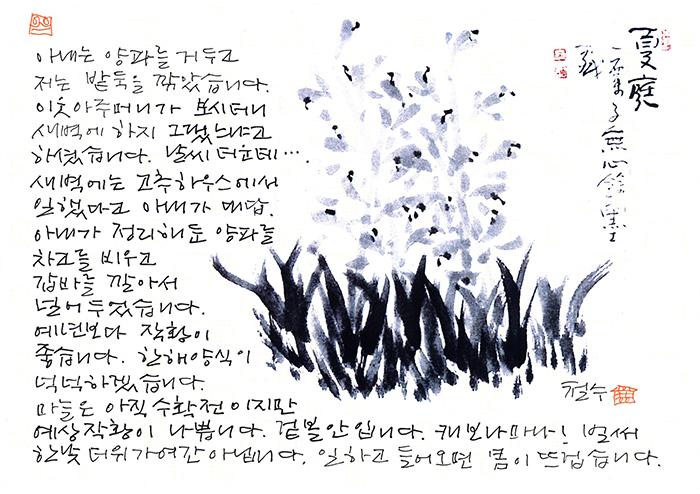 아내는 양파를 거두고
저는 밭둑을 깎았습니다.
이웃아주머니가 보시더니
새벽에 하지 그랬느냐고
하셨습니다. 날씨 더운데….
새벽에는 고추하우스에서
일했다고 아내가 대답.
아내가 정리해둔 양파를
차고를 비우고
갑바를 깔아서
널어 두었습니다.
예년보다 작황이
좋습니다. 한해양식이
넉넉하겠습니다.
마늘은 아직 수확전이지만
예상작황이 나쁩니다. 겉볼안입니다. 캐보나마나! 벌써
한낮 더위가 여간 아닙니다. 일하고 들어오면 몸이 뜨겁습니다.
夏庭
無心
철수